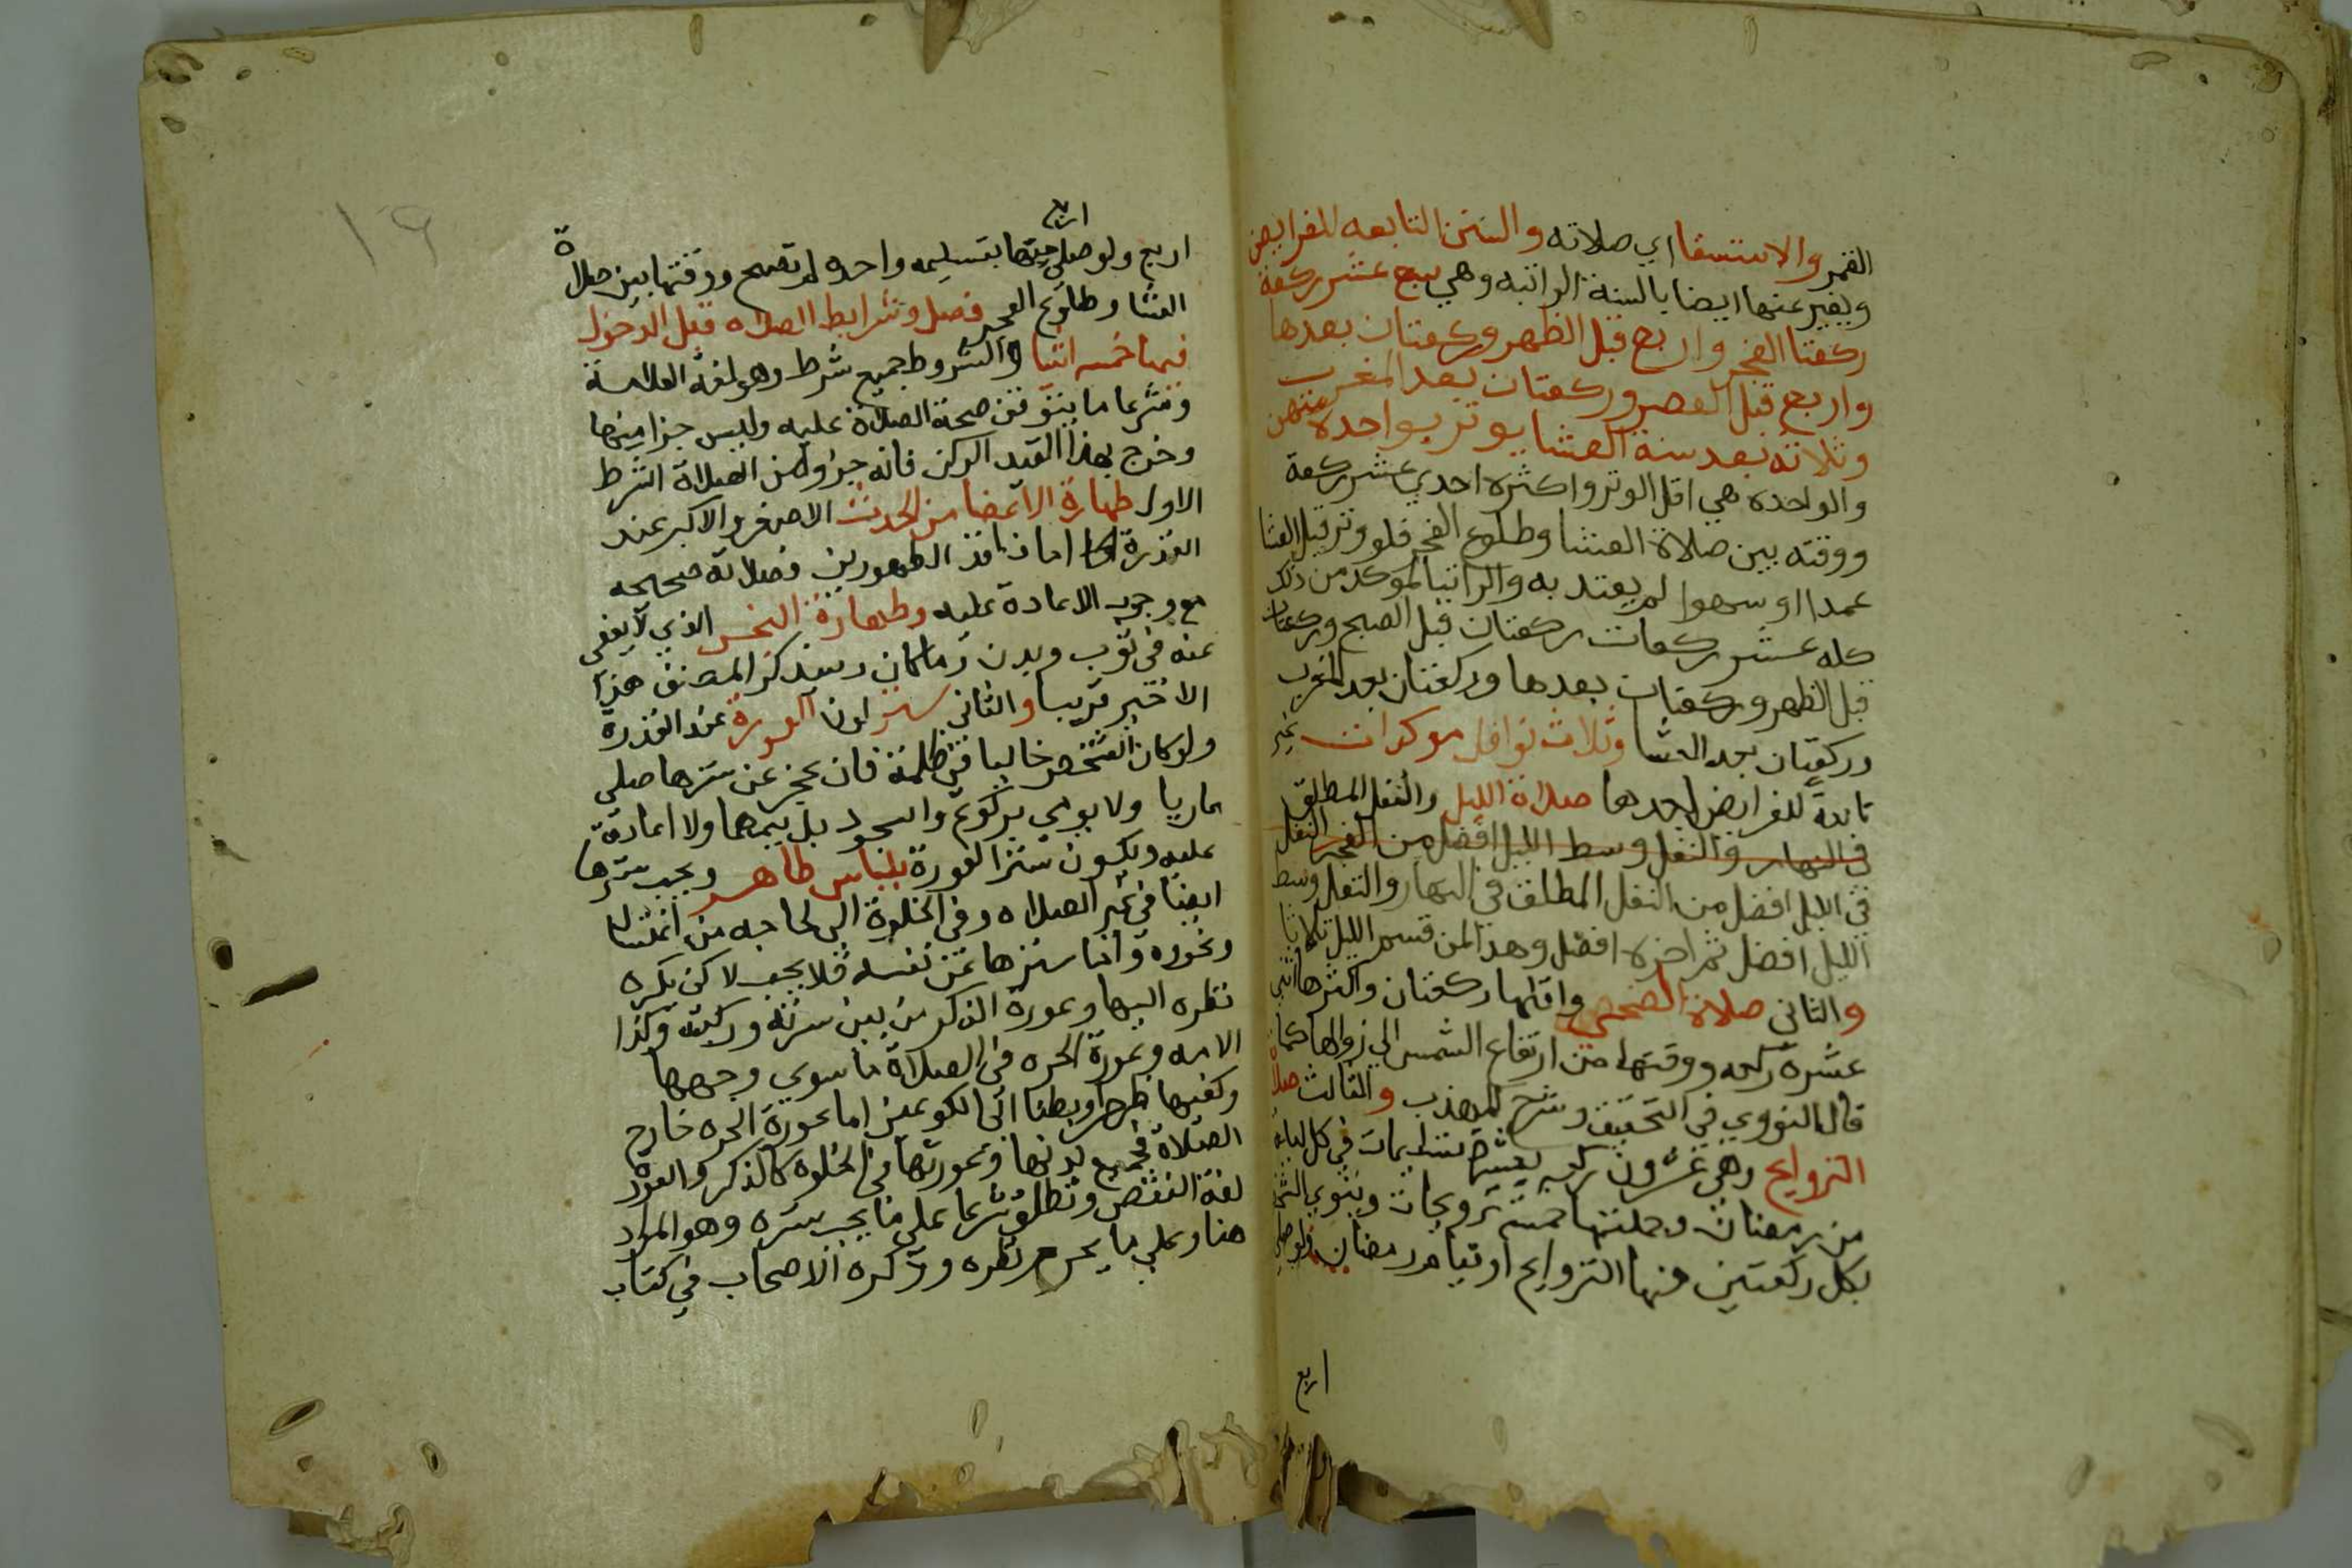 القمر والاستسقا اي صلاته والسنن التابعه للفرايض
ويعبر عنها ايضا بالسنة الراتبه وهي سبع عشر ركعة
ركعتا الفجر واربع قبل الظهر وركعتان بعدها
واربع قبل العصر وركعتان بعد المغرب
وثلاثه بعد سنة العشا يوتر بواحده منهن
والواحده هي اقل الوتر واكثره احدي عشر ركعة
ووقته بين صلاة العشا وطلوع الفجر فلو وتر قبل العشا
عمدا او سهوا لم يعتد به والراتبا لموكد من ذلك
كله عشر ركعات ركعتان قبل الصبح وركعتان
قبل الظهر وركعتان بعدها وركعتان بعد المغرب
وركعتان بعد العشا وثلاث نوافل موكدات غير
تابعة للفرايض احدها صلاة الليل والنفل المطلق
في النهار والنفل وسط الليل افضل من الفجر النفل
في الليل افضل من النفل المطلق في النهار والنفل وسط
الليل افضل ثم اخره افضل وهذا لمن قسم الليل ثلاثا
والثاني صلاة الضحي واقلها ركعتان واكثرها اثني
عشرة ركعه ووقتها من ارتفاع الشمس الي زوالها كما
قال النووي في التحقيق وشرح المهذب والثالث صلاة
التراويح وهي عشرون ركعه بعشر تسليمات في كل ليله
من رمضان وجملتها خمس ترويحات وينوي الشخص
بكل ركعتين منها التراويح او قيام رمضان فلو صلي
اربع
١٩
اربع
اربع ولو صلي منها بتسليمه واحده لم تصح ووقتها بين صلاة
العشا وطلوع الفجر فصل وشرايط الصلاه قبل الدخول
فيها خمسه اشيا والشروط جميع شرط وهو لغة العلامة
وشرعا ما يتوقف صحة الصلاة عليه وليس جزا منها
وخرج بهذا القيد الركن فانه جزؤ من الصلاة الشرط
الاول طهارة الاعضا من الحدث الاصغر والاكبر عند
القدرة اما فاقد الطهورين فصلاته صحيحه
مع وجوب الاعادة عليه وطهارة النجس الذي لا يعفي
عنه في ثوب وبدن ومكان وسيذكر المصنف هذا
الاخير قريبا والثاني ستر لون العورة عند القدرة
ولو كان الشخص خاليا في ظلمة فان عجز عن سترها صلي
عاريا ولا يومي بركوع والسجود بل يتمهما ولا اعادة
عليه ويكون ستر العورة بلباس طاهر ويجب سترها
ايضا في غير الصلاه وفي الخلوة الي لحاجه من اغتسال
ونحوه واما سترها عن نفسه فلا يجب لاكن يكره
نظره اليها وعورة الذكر من بين سرته وركبته وكذا
الامه وعورة الحره في الصلاة ما سوي وجهها
وكفيها ظهرا وبطنا الي الكوعين اما عورة الحره خارج
الصلاة فجميع بدنها وعورتها في الخلوه كالذكر والعورة
لغة النقص وتطلق شرعا علي ما يجب ستره وهو المراد
هنا وعلي ما يحرم نظره وذكره الاصحاب في كتاب